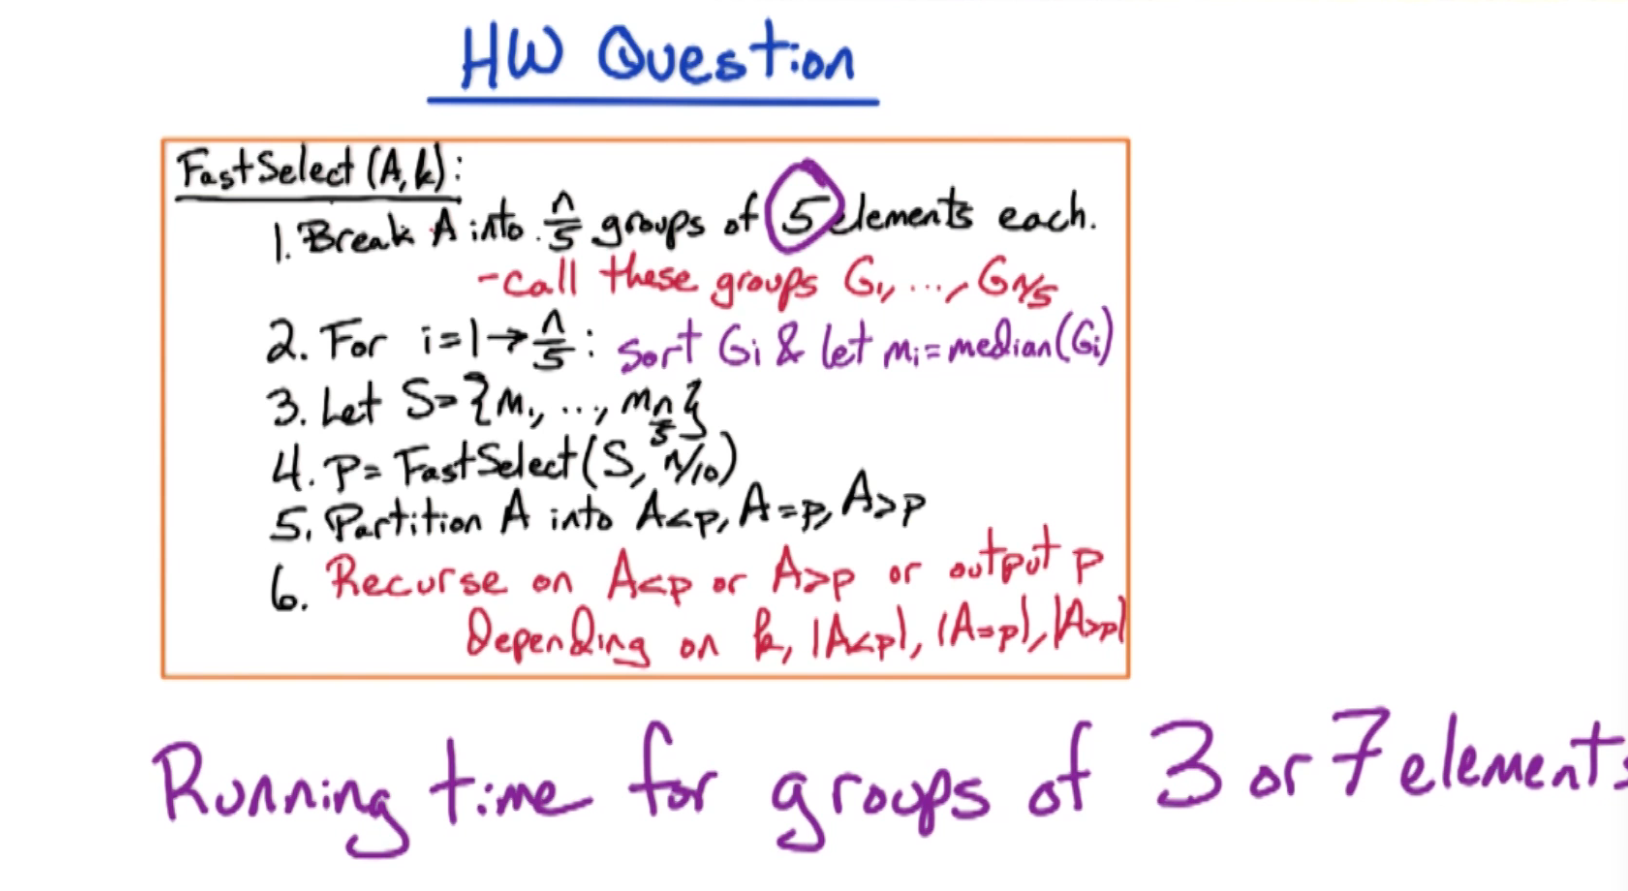 HW Question
FastSelect(A,k):
1. Break A into n/5 groups of 5 elements each.
-call these groups G₁, ..., Gn/5
2. For i=1→n/5: sort Gi & let mi=median(Gi)
3. Let S={m₁, ..., mn/5}
4. p= FastSelect(S, n/10)
5. Partition A into A<p, A=p, A>p
6. Recurse on A<p or A>p or output p
Depending on k, |A<p|, |A=p|, |A>p|
Running time for groups of 3 or 7 elements